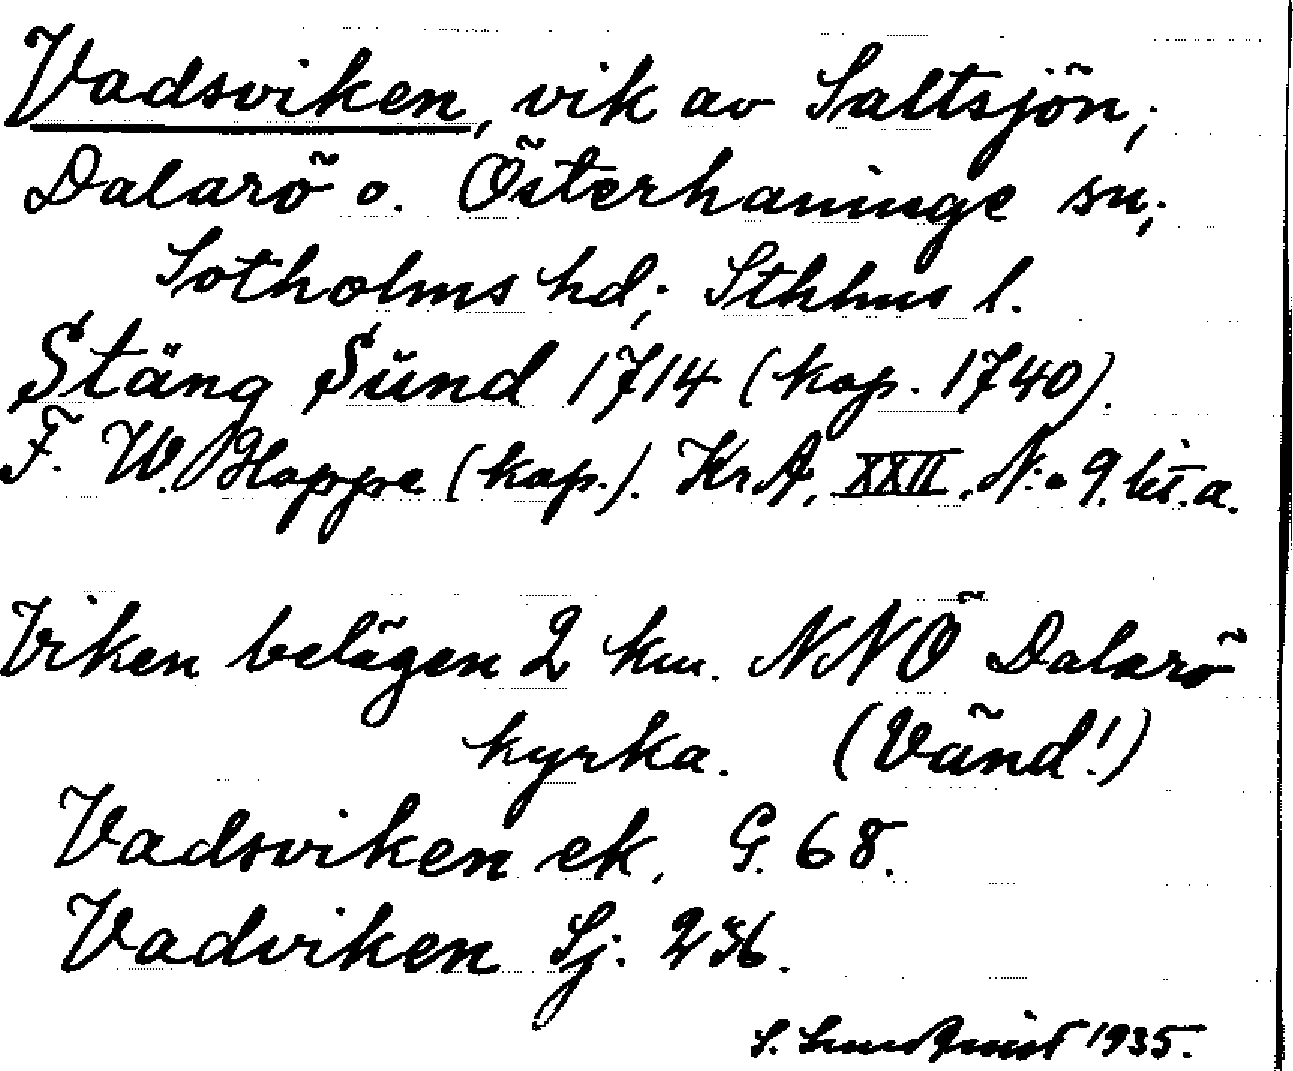 Vadsviken, vik av Saltsjön,
Dalarö o. Österhaninge sn,
Sotholms hd, Sthlms l.
Stäng Sŭnd 1714 (kop. 1740).
F. W. Hoppe (kop.). KrA, XXII, N:o 9. lit. a.
Viken belägen 2 km. NNÖ Dalarö
kyrka. (Vänd!)
Vadsviken ek. G. 68.
Vadviken Sj. 236.
S. Lundqvist 1935.